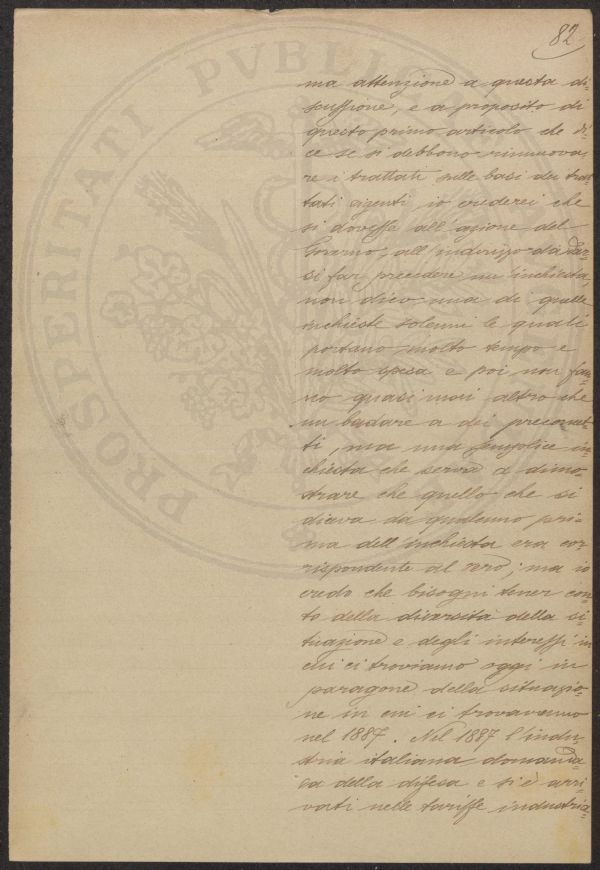 82
PROSPERITATI PVBLI
ma attenzione a questa di=
scussione, e a proposito di
questo primo articolo che di=
ce se si debbono rinnuova=
re i trattati sulle basi dei trat=
tati vigenti, io crederei che
si dovesse all'azione del
Governo, all'indirizzo da dar=
si far precedere un'inchiesta,
non dico una di quelle
inchieste solenni le quali
portano molto tempo e
molto spesa e poi non fan=
no quasi mai altro che
un badare a dei
ti, ma una semplice in=
chiesta che serva a dimo=
strare che quello che si
diceva da qualcuno pri=
ma dell'inchiesta era cor=
rispondente al vero; ma io
credo che bisogni tener con=
to della diversità della si=
tuazione e degli interessi in
cui ci troviamo oggi in
paragone della situazio=
ne in cui ci trovavamo
nel 1887. Nel 1887 l'indu=
stria italiana domanda=
va della difesa e si è arri=
vati nelle tariffe industria=